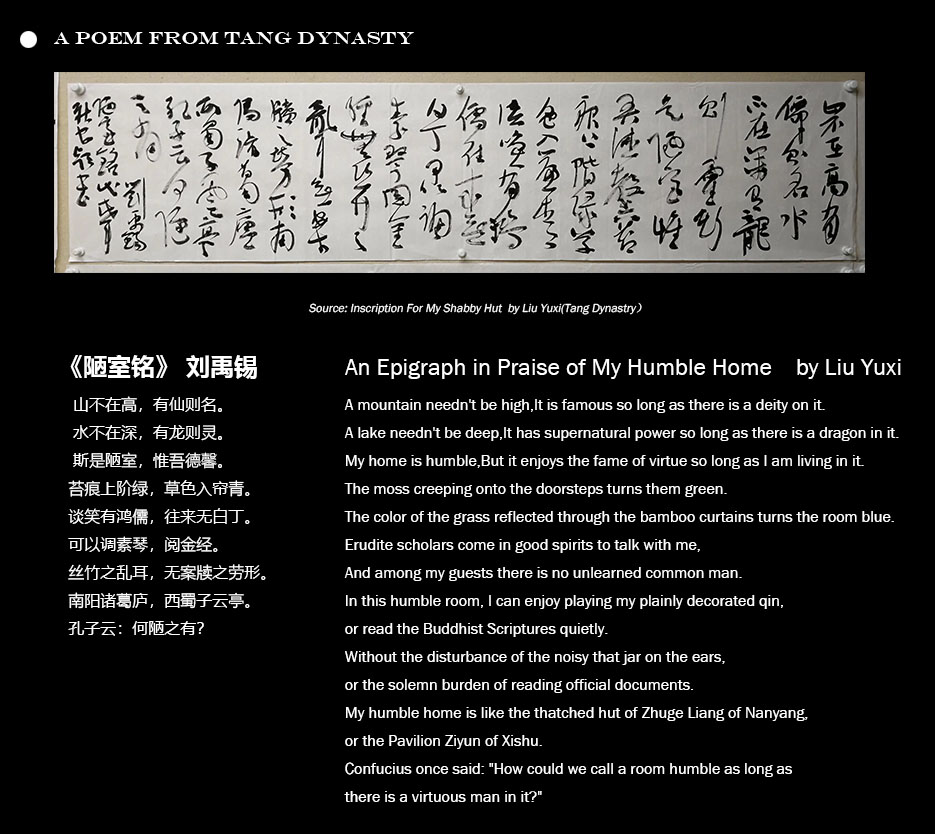 A POEM FROM TANG DYNASTY
不在深有龍
則靈斯
是陋室惟
色入簾青
儒往來無
白丁可以調
素琴閱金
牘之勞形南
陽諸葛廬
西蜀子雲亭
孔子云何陋
之有 劉禹錫
陋室銘
Source: Inscription For My Shabby Hut by Liu Yuxi(Tang Dynastry）
《陋室铭》 刘禹锡
山不在高，有仙则名。
水不在深，有龙则灵。
斯是陋室，惟吾德馨。
苔痕上阶绿，草色入帘青。
谈笑有鸿儒，往来无白丁。
可以调素琴，阅金经。
丝竹之乱耳，无案牍之劳形。
南阳诸葛庐，西蜀子云亭。
孔子云：何陋之有?
An Epigraph in Praise of My Humble Home by Liu Yuxi
A mountain needn't be high,It is famous so long as there is a deity on it.
A lake needn't be deep,It has supernatural power so long as there is a dragon in it.
My home is humble,But it enjoys the fame of virtue so long as I am living in it.
The moss creeping onto the doorsteps turns them green.
The color of the grass reflected through the bamboo curtains turns the room blue.
Erudite scholars come in good spirits to talk with me,
And among my guests there is no unlearned common man.
In this humble room, I can enjoy playing my plainly decorated qin,
or read the Buddhist Scriptures quietly.
Without the disturbance of the noisy that jar on the ears,
or the solemn burden of reading official documents.
My humble home is like the thatched hut of Zhuge Liang of Nanyang,
or the Pavilion Ziyun of Xishu.
Confucius once said: "How could we call a room humble as long as
there is a virtuous man in it?"